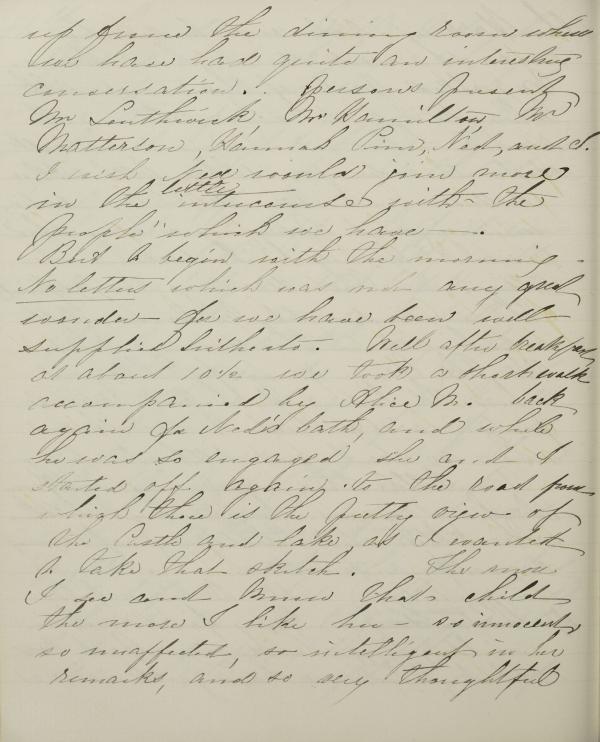 up from the dining room where
we have had quite an interesting
conversation. . Persons present
Mr Southwick, Mr Hamilton, Mr
Matterson, Hannah Pim, Ned, and I.
I wish Ned would join more
little
in the intercourse with the
people which we have — .
But to begin with the morning -
No letters which was not any great
wonder for we have been well
supplied hitherto. Well after breakfast
at about 10½ we took a short walk
accompanied by Alice M. back
again for Ned's bath, and while
he was so engaged she and I
started off again to the road from
which there is the pretty view of
the Castle and lake, as I wanted
to take that sketch. The more
I see and know that child
the more I like her — so innocent,
so unaffected, so intelligent in her
remarks, and so very thoughtful